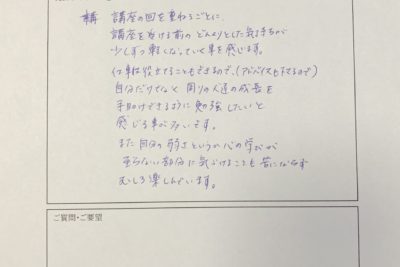 講座の回を重ねるごとに、
講座を受ける前の どんよりとした気持ちが
少しずつ軽くなっていく事を感じます。
仕事に役立てることもできるので、(アドバイスも下さるので)
自分だけでなく 周りの人達の成長を
手助けできるように 勉強したいと
感じる事が多いです。
また自分の弱さというか心の学びが
足らない部分に気づけることも 苦にならず
むしろ楽しんでいます。
ご質問・ご要望